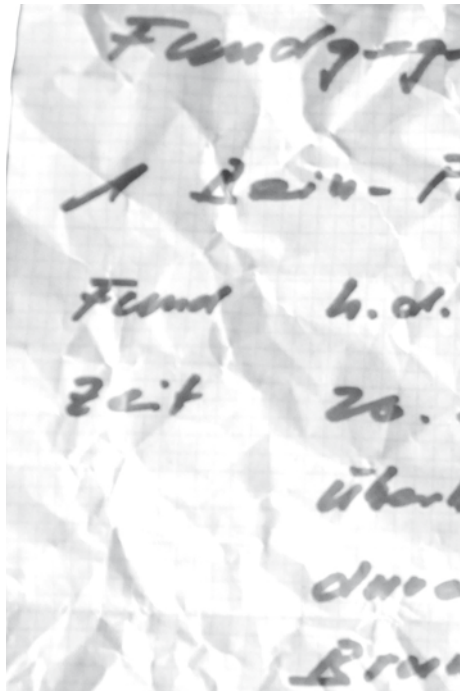 Fundgeg
1 Bein- F
Fund h.d.
Zeit 20.
über
durc
Bran